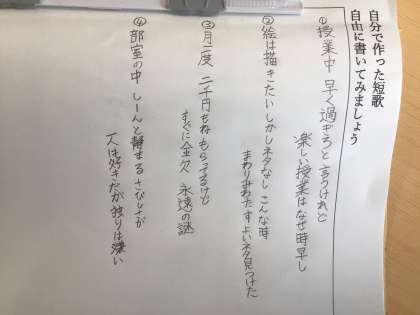 自分で作った短歌
自由に書いてみましょう
①授業中 早く過ぎろと言うけれど
楽しい授業はなぜ時早し
②絵は描きたい しかしネタなし こんな時
まわりみわたす よいネタ見つけた
③月一度 二千円もね もらってるけど
すぐに金欠 永遠の謎
④部室の中 しーんと静まる さびしさが
人は好きだが 独りは凄い